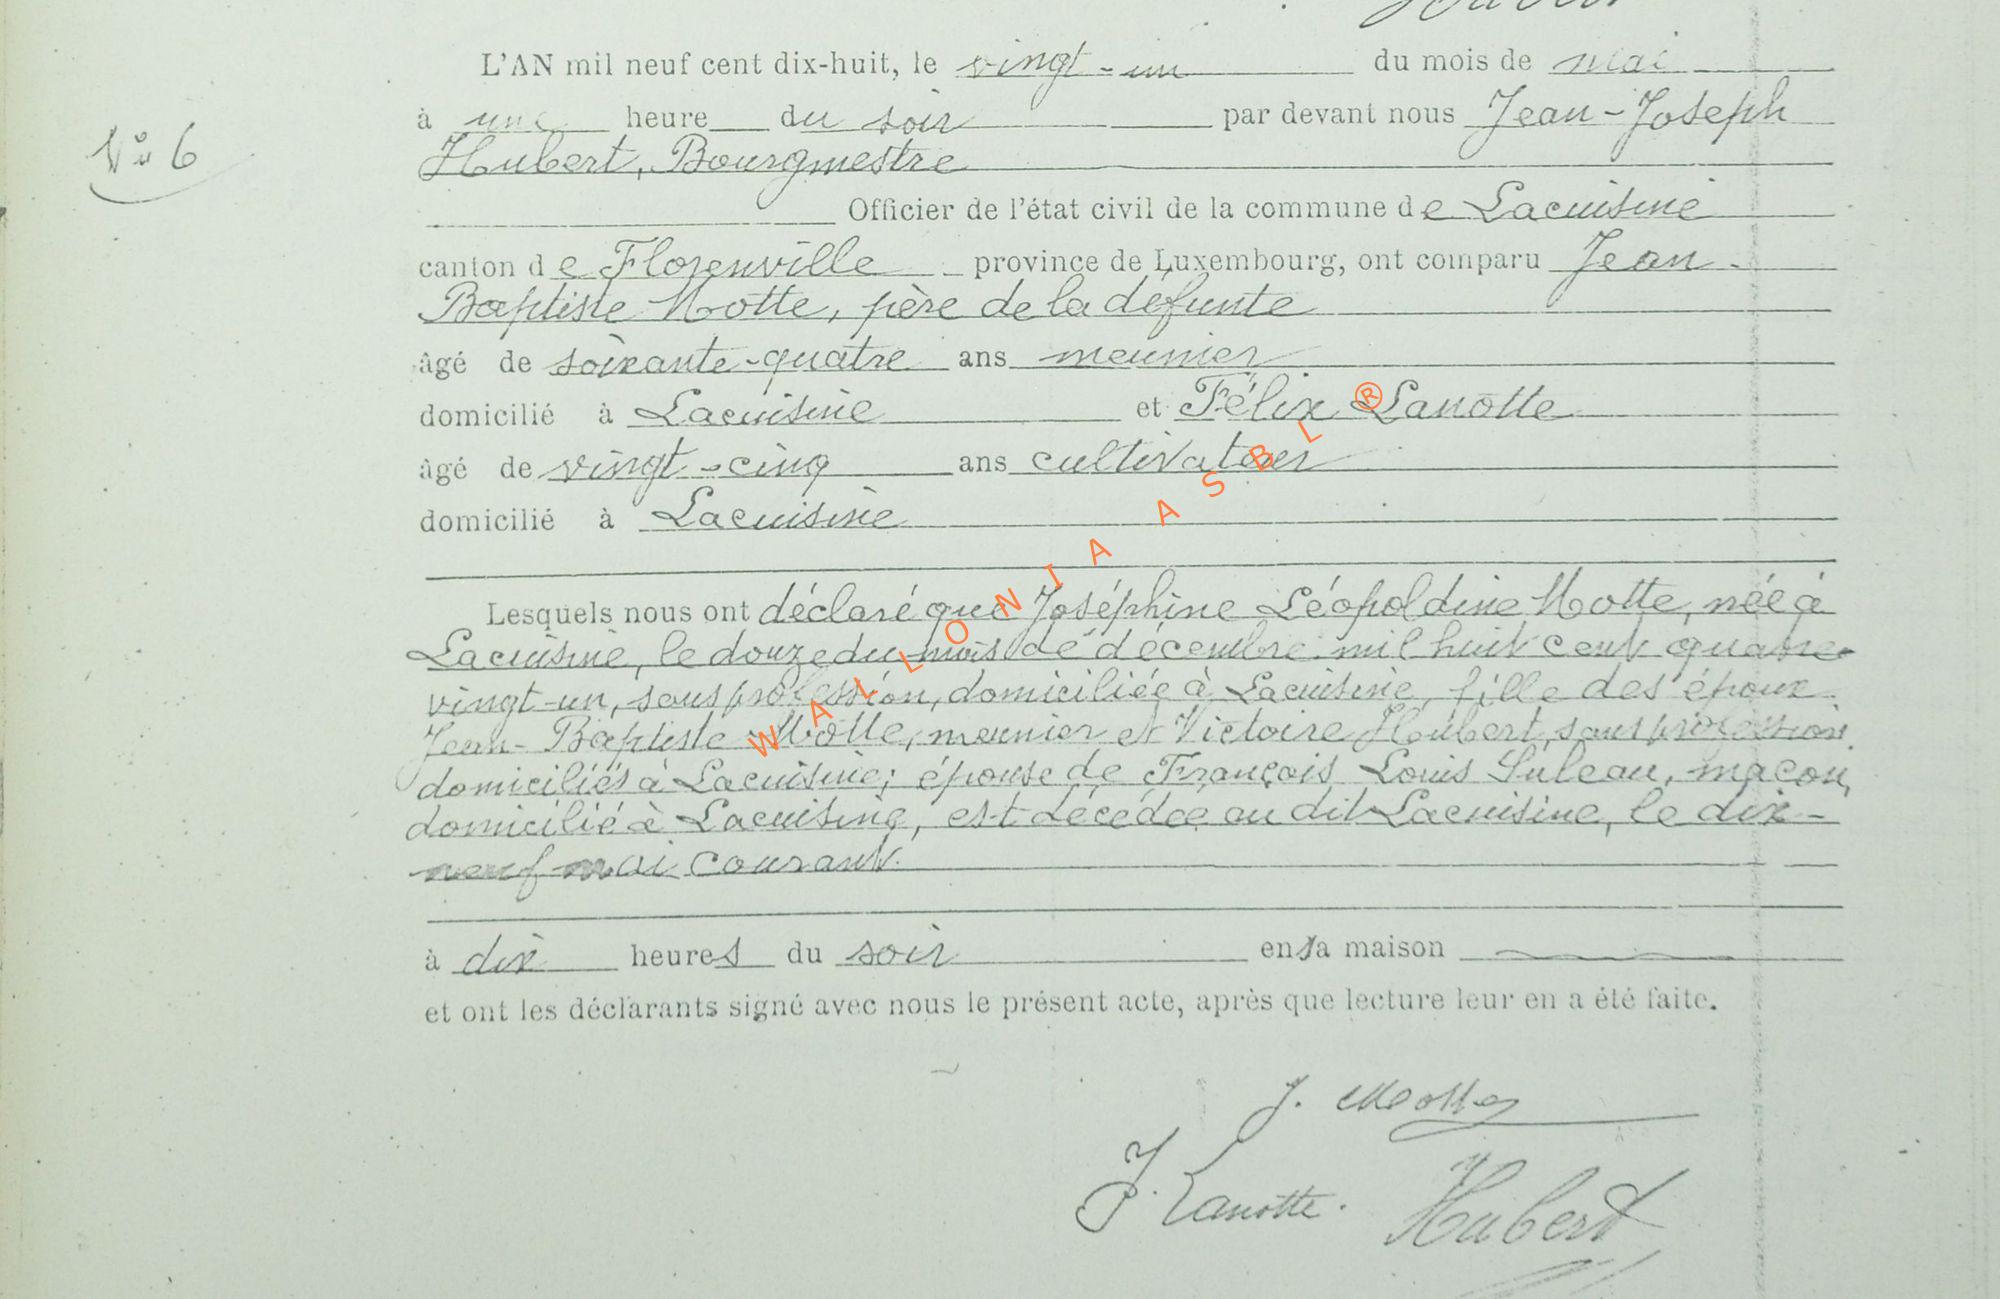 L'AN mil neuf cent dix-huit, le vingt-un du mois de mai
N° 6
à une heure du soir par devant nous Jean-Joseph
Hubert, Bourgmestre
Officier de l'état civil de la commune de Lacuisine
canton de Florenville province de Luxembourg, ont comparu Jean-
Baptiste Motte, père de la défunte
âgé de soixante-quatre ans meunier
domicilié à Lacuisine et Félix Lanotte
âgé de vingt-cinq ans cultivateur
domicilié à Lacuisine
Lesquels nous ont déclaré que Joséphine Léopoldine Motte, née à
Lacuisine, le douze du mois de décembre mil huit cent quatre-
vingt-un, sans profession, domiciliée à Lacuisine, fille des époux
Jean-Baptiste Motte, meunier et Victoire Hubert, sans profession
domiciliés à Lacuisine; épouse de François Louis Suleau, maçon,
domicilié à Lacuisine, est décédée au dit Lacuisine, le dix-
neuf mai courant.
à dix heures du soir en sa maison
et ont les déclarants signé avec nous le présent acte, après que lecture leur en a été faite.
J. Motte
F. Lanotte.
Hubert
WALLONIA ASBL ®